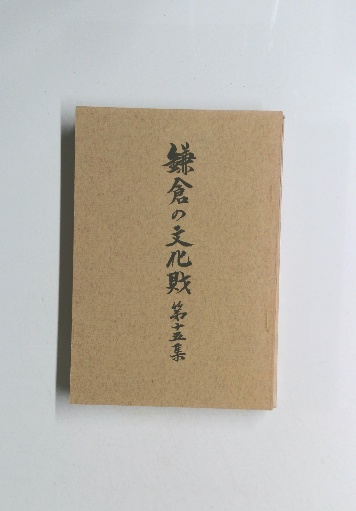 鎌倉の文化財 第十五集